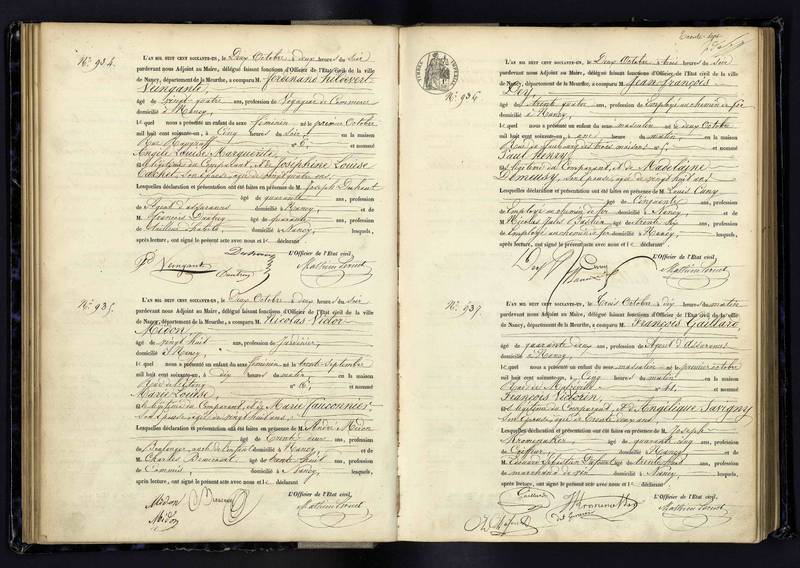 N° 934.
L'AN MIL HUIT CENT SOIXANTE-UN, le Deux Octobre à deux heures du Soir
pardevant nous Adjoint au Maire, délégué faisant fonctions d'Officier de l'Etat civil de la ville
de Nancy, département de la Meurthe, a comparu M. Ferdinand
Veingante,
âgé de trente quatre ans, profession de Voyageur de Commerce
domicilié à Nancy,
le quel nous a présenté un enfant du sexe féminin né le premier Octobre
mil huit cent soixante-un, à Cinq heures du Soir, en la maison
Rue n° 6, et nommé
Angèle Louise Marguerite,
légitime du Comparant, et de Joséphine Louise
son épouse, âgée de vingt quatre ans.
Lesquelles déclaration et présentation ont été faites en présence de M. Joseph
âgé de quarante ans, profession
d'Agent d'assurances domicilié à Nancy, et de
M. François âgé de quarante ans, profession
de domicilié à Nancy, lesquels,
après lecture, ont signé le présent acte avec nous et le déclarant
L'Officier de l'Etat civil,
Veingante
N° 935.
L'AN MIL HUIT CENT SOIXANTE-UN, le Deux Octobre à deux heures du Soir
pardevant nous Adjoint au Maire, délégué faisant fonctions d'Officier de l'Etat civil de la ville
de Nancy, département de la Meurthe, a comparu M. Nicolas Victor
Midon,
âgé de vingt huit ans, profession de Jardinier,
domicilié à Nancy,
le quel nous a présenté un enfant du sexe féminin né le trente Septembre
mil huit cent soixante-un, à Dix heures du matin en la maison
n° 6, et nommé
Marie Louise,
légitime du Comparant, et de Marie
son épouse, âgée de vingt huit ans.
Lesquelles déclaration et présentation ont été faites en présence de M. André Midon
âgé de trente deux ans, profession
de Boulanger, oncle de l'enfant domicilié à Nancy, et de
M. Charles âgé de trente huit ans, profession
de Commis, domicilié à Nancy, lesquels,
après lecture, ont signé le présent acte avec nous et le déclarant
L'Officier de l'Etat civil,
Midon
Midon
N° 936
L'AN MIL HUIT CENT SOIXANTE-UN, le Deux Octobre à trois heures du Soir
pardevant nous Adjoint au Maire, délégué faisant fonctions d'Officier de l'Etat civil de la ville
de Nancy, département de la Meurthe, a comparu M. Jean François
âgé de trente quatre ans, profession d'Employé au chemin de fer
domicilié à Nancy,
le quel nous a présenté un enfant du sexe masculin né le deux Octobre
mil huit cent soixante-un, à une heure du matin en la maison
Rue du faubourg des trois maisons n° et nommé
Paul Henry,
légitime du Comparant, et de Madelaine
son épouse, âgée de vingt huit ans
Lesquelles déclaration et présentation ont été faites en présence de M. Louis
âgé de Cinquante ans, profession
d'Employé au chemin de fer domicilié à Nancy, et de
M. Nicolas Jules âgé de trente six ans, profession
d'Employé au chemin de fer domicilié à Nancy, lesquels,
après lecture, ont signé le présent acte avec nous et le déclarant
L'Officier de l'Etat civil,
N° 937.
L'AN MIL HUIT CENT SOIXANTE-UN, le Trois Octobre à dix heures du matin
pardevant nous Adjoint au Maire, délégué faisant fonctions d'Officier de l'Etat civil de la ville
de Nancy, département de la Meurthe, a comparu M. François Gaillard,
âgé de quarante deux ans, profession d'Agent d'assurances
domicilié à Nancy,
le quel nous a présenté un enfant du sexe masculin né le premier octobre
mil huit cent soixante-un, à Cinq heures du matin en la maison
n° 41, et nommé
François Victorin,
légitime du Comparant, et d'Angélique Savigny
son épouse, âgée de trente cinq ans,
Lesquelles déclaration et présentation ont été faites en présence de M. Joseph
âgé de quarante cinq ans, profession
de Coiffeur, domicilié à Nancy et de
M. Edouard Sébastien âgé de trente huit ans, profession
de marchand de vin, domicilié à Nancy, lesquels,
après lecture, ont signé le présent acte avec nous et le déclarant
L'Officier de l'Etat civil,
Gaillard